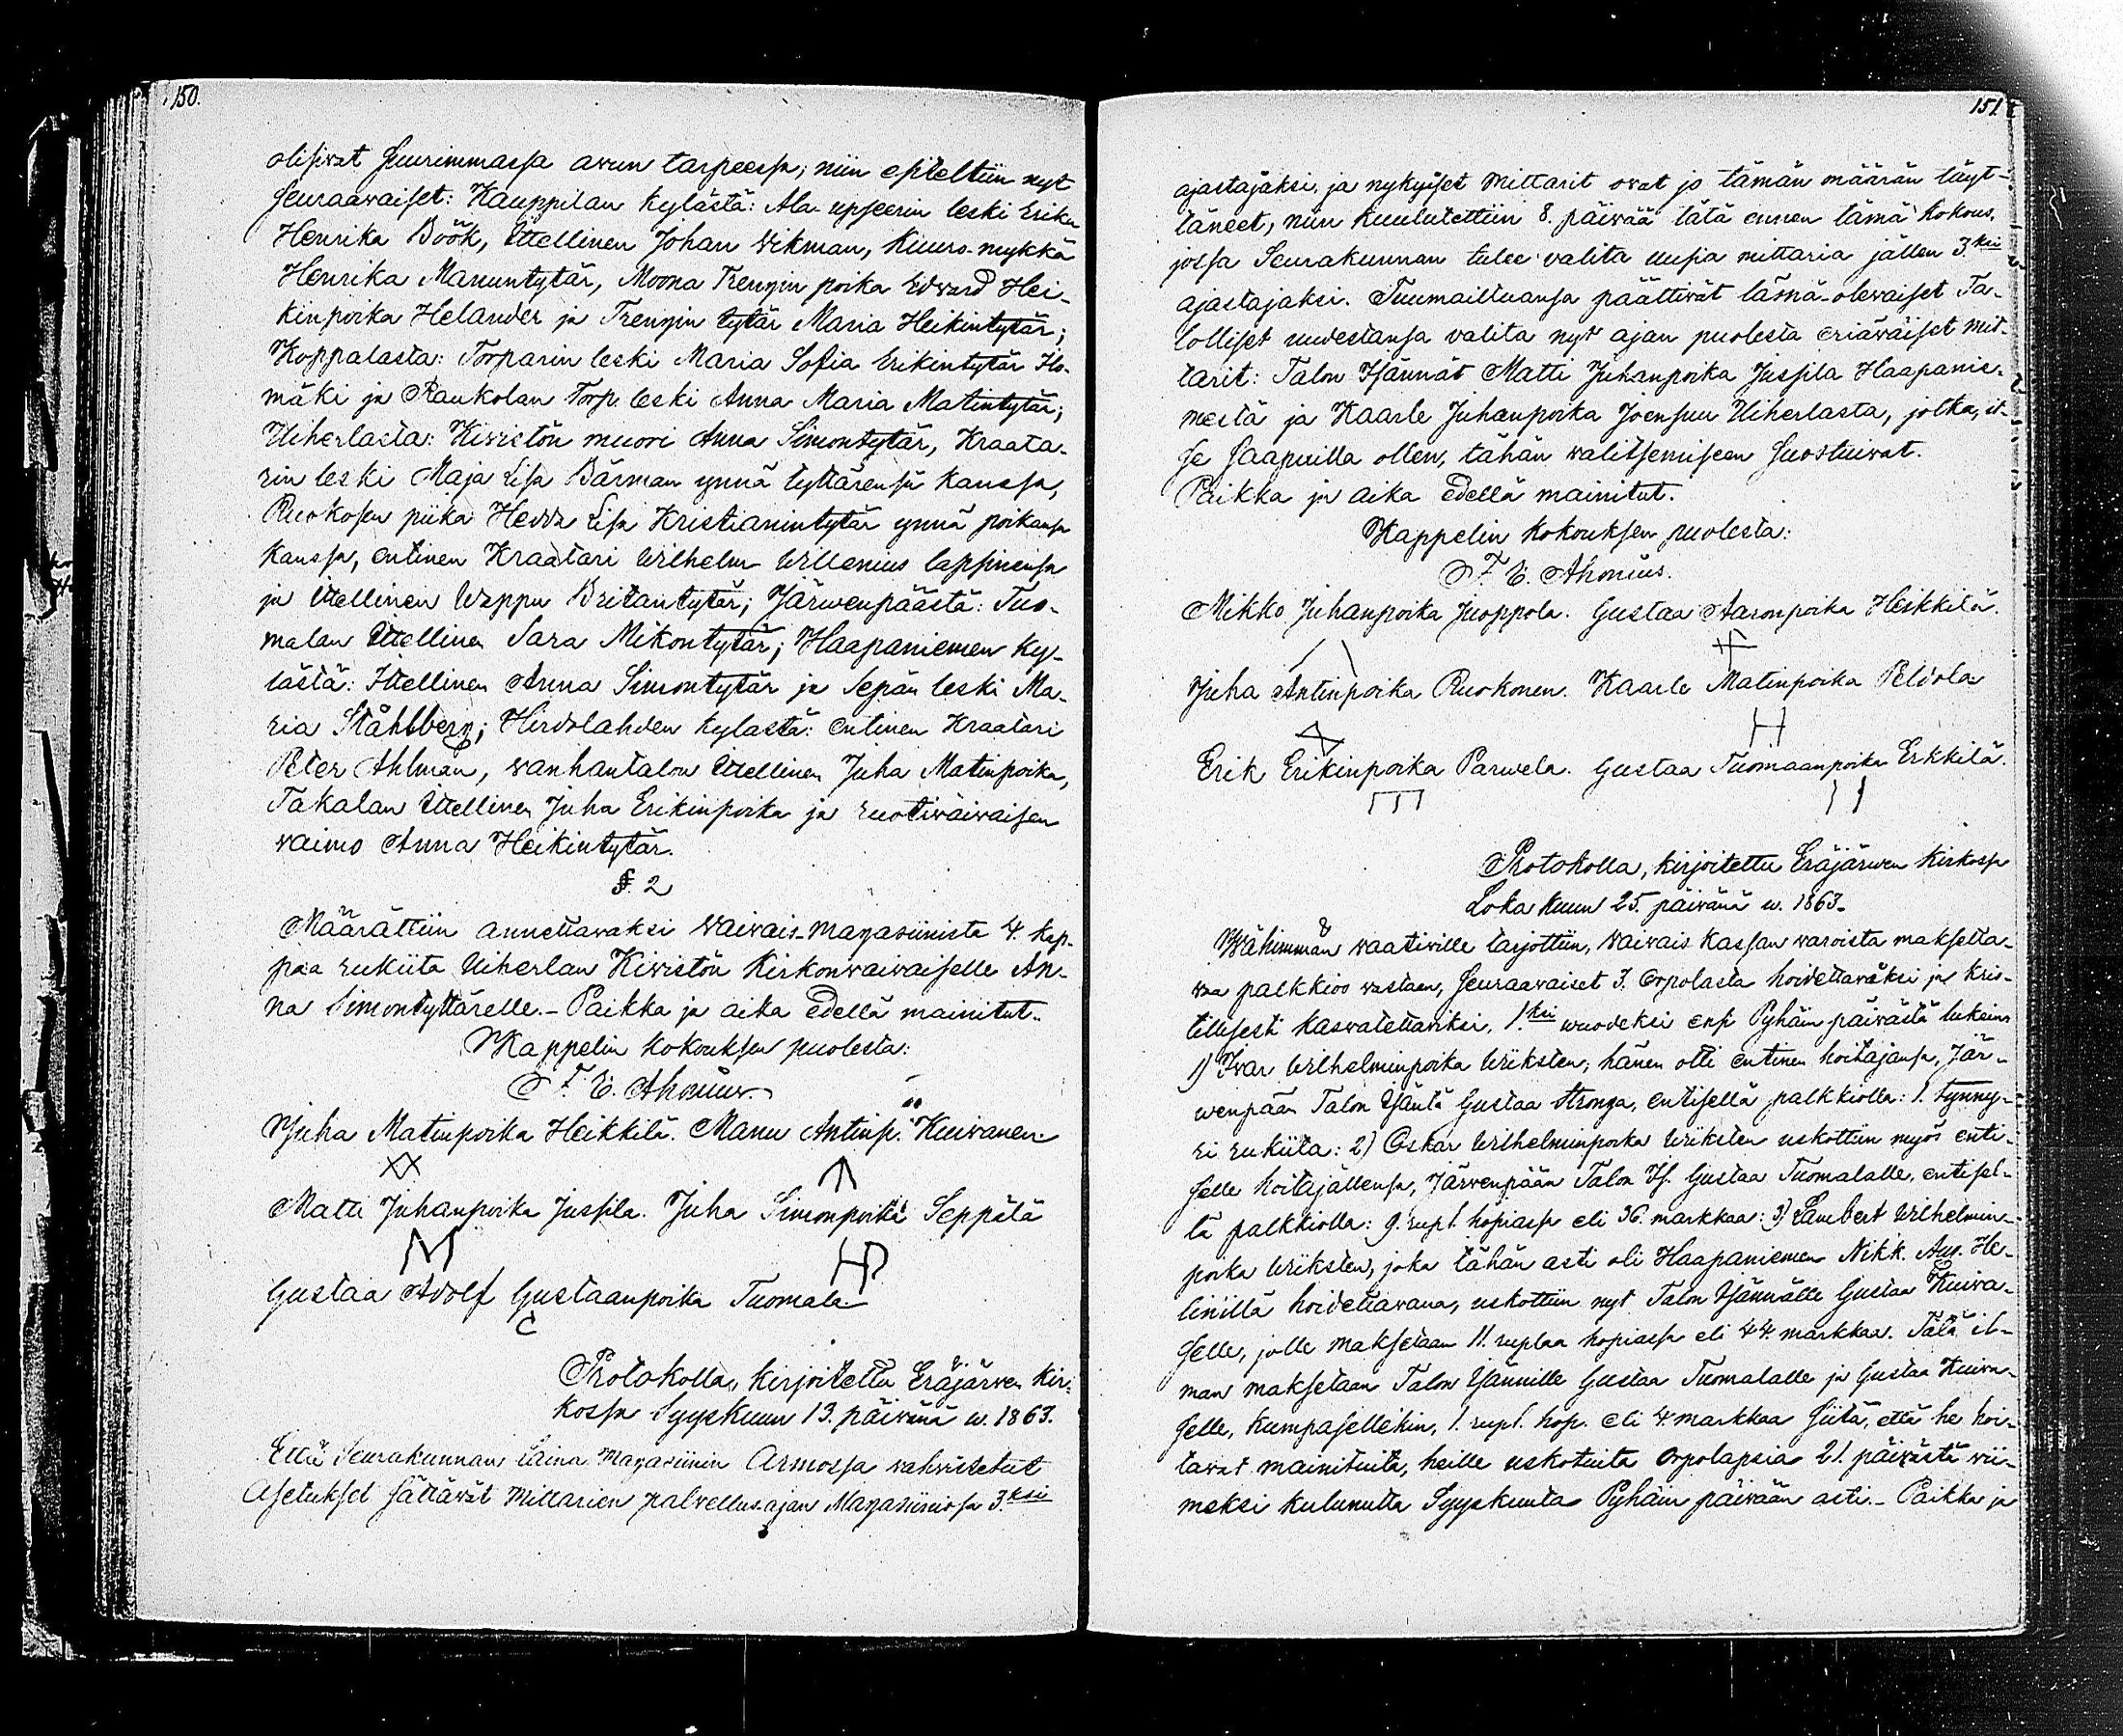 150.
olisivat suurimmassa avun tarpeessa; niin esiteltiin nyt
seuraavaiset: Kauppilan kylästä: Ala-upseerin leski Erika
Henrika Böök, Itellinen Johan Wikman, kuuro-mykkä
Henrika Manuntytär, Moona Trengin poika Edvard Hei-
kinpoika Helander ja Trengin tytär Maria Heikintytär;
Koppalasta: Torparin leski Maria Sofia Erikintytär Ho-
mäki ja Raukolan Torp. leski Anna Maria Matintytär;
Uiherlasta: Kivistön muori Anna Simontytär, Kraata-
rin leski Maja Lisa Bärman ynnä tyttärensä kanssa,
Ruokosen piika Hedda Lisa Kristianintytär ynnä poikansa
kanssa, entinen Kraatari Wilhelm Willenius lapsinensa
ja Itellinen Wappu Britantytär; Järwenpäästä: Tuo-
malan Itellinen Sara Mikontytär; Haapaniemen ky-
lästä: Itellinen Anna Simontytär ja Sepän leski Ma-
ria Ståhlberg; Hirdolahden kylästä: entinen Kraatari
Peter Ahlman, wanhantalon Itellinen Juha Matinpoika,
Takalan Itellinen Juha Erikinpoika ja ruotiwäiwaisen
vaimo Anna Heikintytär.
§. 2
Määrättiin annettavaksi Waivais-magasiinista 4. kap-
paa rukiita Uiherlan Kivistön Kirkonvaivaiselle An-
na Simontyttärelle.- Paikka ja aika edellä mainitut.
Kappelin kokouksen puolesta:
F. E. Ahonius.
Juha Matinpoika Heikkilä. Manu Antinp. Kuivanen
Matti Juhanpoika Jussila. Juha Simonpoika Seppälä
Gustaa Adolf Gustaanpoika Tuomala
Protokolla, kirjoitettu Eräjärven Kir-
kossa Syyskuun 13. päivänä w. 1863.
Että Seurakunnan Laina Magasiinin Armossa vahvistetut
Asetukset säätävät Mittarien palvellusajan Magasiinissa 3.ksi
151.
ajastajaksi, ja nykyiset Mittarit ovat jo tämän määrän täyt-
täneet, niin kuulutettiin 8. päivää tätä ennen tämä kokous,
jossa Seurakunnan tulee valita uusia mittaria jällen 3.ksi
ajastajaksi. Tuumailtuansa päättivät läsnä-olevaiset Ta-
lolliset uudestansa valita nyt ajan puolesta eriäväiset mit-
tarit: Talon Isännät Matti Juhanpoika Jussila Haapanie-
mestä ja Kaarle Juhanpoika Joensuu Uiherlasta, jotka, it-
se saapuilla ollen, tähän valitsemiseen suostuivat.
Paikka ja aika edellä mainitut.
Kappelin kokouksen puolesta:
F. E. Ahonius.
Mikko Juhanpoika Juoppola. Gustaa Aaronpoika Heikkilä.
Juha Antinpoika Ruokonen. Kaarle Matinpoika Peldola
Erik Erikinpoika Parwela. Gustaa Tuomaanpoika Erkkilä.
Protokolla, kirjoitettu Eräjärwen kirkossa
Lokakuun 25. päivänä w. 1863.
Wähimmän waativille tarjottiin, Waivais kassan waroista maksetta-
vaa palkkioo vastaan, seuraavaiset 3. orpolasta hoidettavaksi ja kris-
tillisesti kasvatettaviksi, 1.ksi wuodeksi ensi Pyhäin päivästä lukein:
1) Ivar Wilhelminpoika Wiksten; hänen otti entinen hoitajansa, Jär-
wenpään Talon Isäntä Gustaa Stronga, entisellä palkkiolla: 1. tynny-
ri rukiita: 2) Oskar Wilhelminpoika Wiksten uskottiin myös enti-
selle hoitajallensa, Järvenpään Talon Is. Gustaa Tuomalalle, entisel-
lä palkkiolla: 9. rupl. hopiassa eli 36. markkaa: 3) Lambert Wilhelmin-
poika Wiksten, joka tähän asti oli Haapaniemen Nikk. Aug. He-
linillä hoidettavana, uskottiin nyt Talon Isännälle Gustaa Kuiva-
selle, jolle maksetaan 11. ruplaa hopiassa eli 44. markkaa. Tätä il-
man maksetaan Talon Isännille Gustaa Tuomalalle ja Gustaa Kuiva-
selle, kumpasellekin, 1. rupl. hop. eli 4 markkaa siitä, että he hoi-
tavat mainituita, heille uskotuita orpolapsia 21. päivästä vii-
meksi kulunutta Syyskuuta Pyhäin päivään asti.- Paikka ja